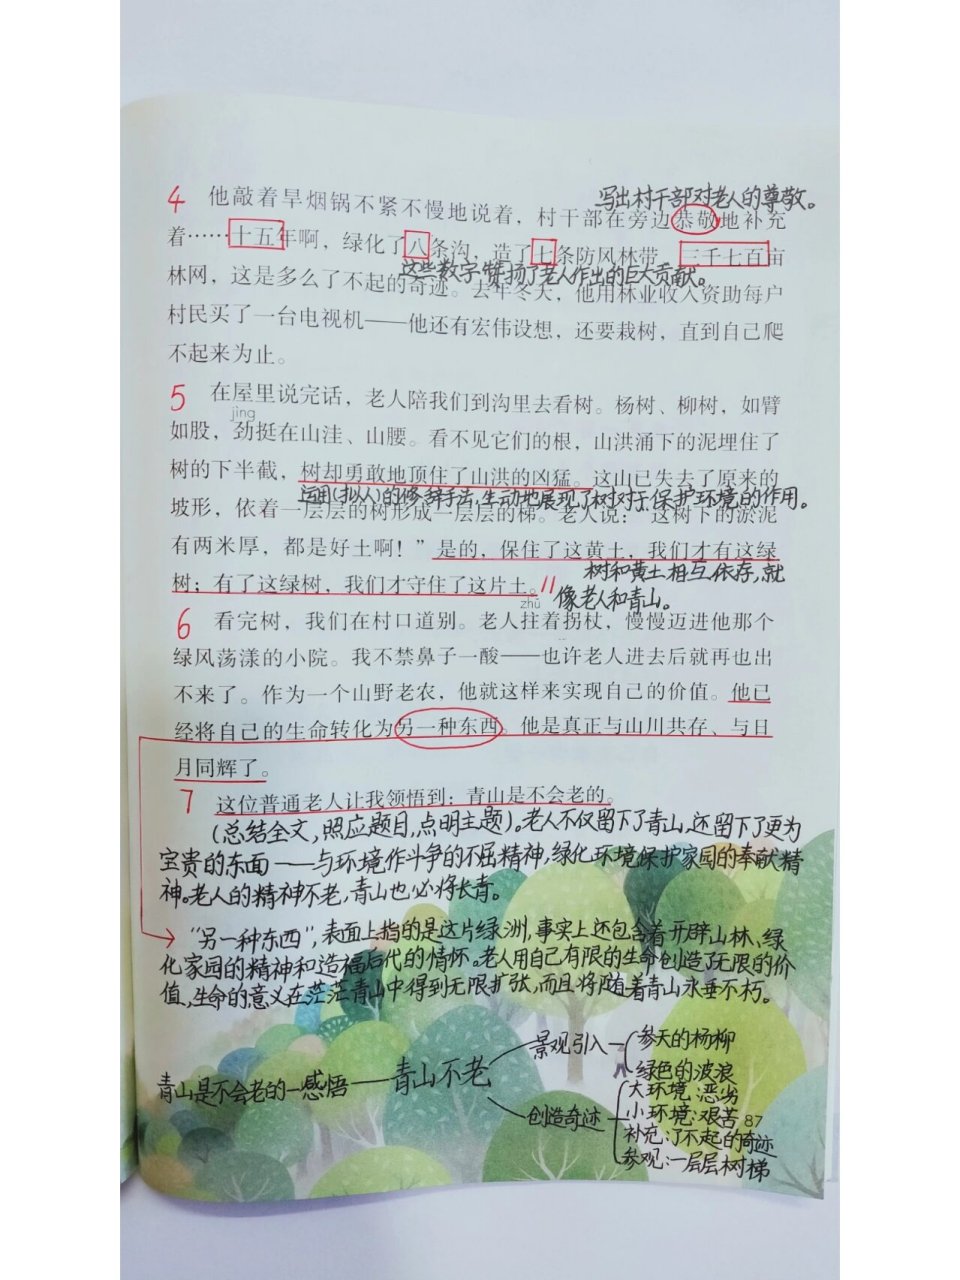 写出村干部对老人的尊敬。
4 他敲着旱烟锅不紧不慢地说着，村干部在旁边恭敬地补充
着……十五年啊，绿化了八条沟，造了七条防风林带，三千七百亩
这些数字赞扬了老人作出的巨大贡献。
林网，这是多么了不起的奇迹。去年冬天，他用林业收入资助每户
村民买了一台电视机——他还有宏伟设想，还要栽树，直到自己爬
不起来为止。
5 在屋里说完话，老人陪我们到沟里去看树。杨树、柳树，如臂
jìng
如股，劲挺在山洼、山腰。看不见它们的根，山洪涌下的泥埋住了
树的下半截，树却勇敢地顶住了山洪的凶猛。这山已失去了原来的
运用(拟人)的修辞手法,生动地展现了树对于保护环境的作用。
坡形，依着一层层的树形成一层层的梯。老人说：“这树下的淤泥
有两米厚，都是好土啊！”是的，保住了这黄土，我们才有这绿
树；有了这绿树，我们才守住了这片土。
树和黄土相互依存,就
像老人和青山。
zhǔ
6 看完树，我们在村口道别。老人拄着拐杖，慢慢迈进他那个
绿风荡漾的小院。我不禁鼻子一酸——也许老人进去后就再也出
不来了。作为一个山野老农，他就这样来实现自己的价值。他已
经将自己的生命转化为另一种东西。他是真正与山川共存、与日
月同辉了。
7 这位普通老人让我领悟到：青山是不会老的。
(总结全文,照应题目,点明主题)。老人不仅留下了青山,还留下了更为
宝贵的东面——与环境作斗争的不屈精神,绿化环境保护家园的奉献精
神。老人的精神不老,青山也必将长青。
“另一种东西”,表面上指的是这片绿洲,事实上还包含着开辟山林、绿
化家园的精神和造福后代的情怀。老人用自己有限的生命创造了无限的价
值,生命的意义在茫茫青山中得到无限扩张,而且将随着青山永垂不朽。
青山是不会老的—感悟——青山不老
景观引入
参天的杨柳
绿色的波浪
创造奇迹
大环境:恶劣
小环境:艰苦
补充:了不起的奇迹
参观:一层层树梯
87